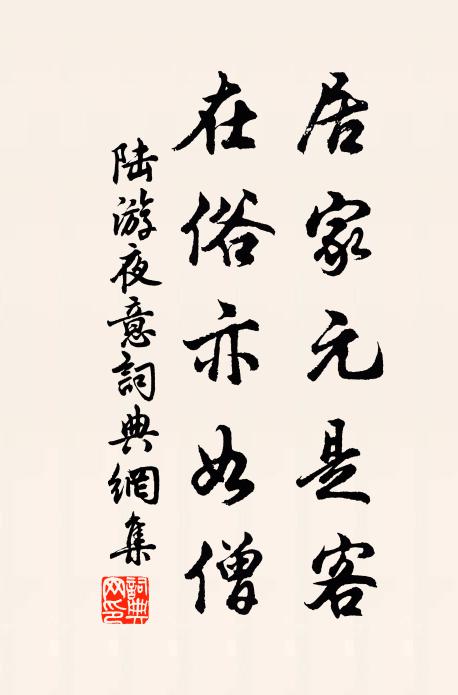 居家元是客
在俗亦如僧
陆游夜意詞典網集
詞典网印